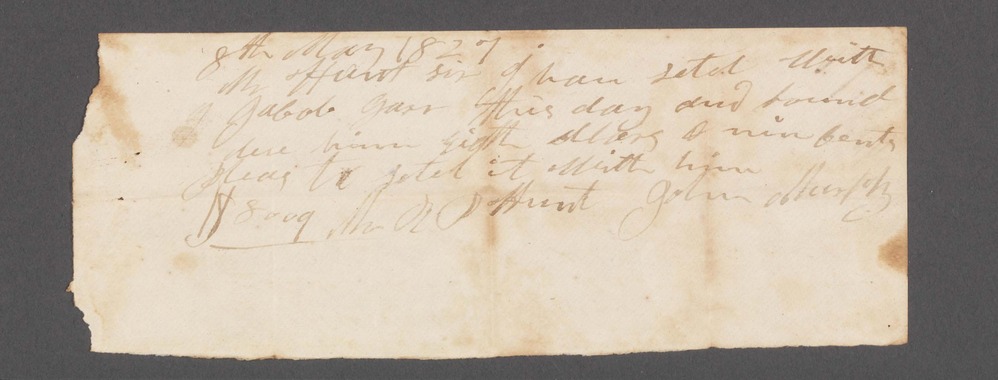 8th May 1827
Mr Hunt sir I have setel With
Jabob Garr this day and found
due him eight dllers & nin Cents
pleas to setel it With him
$8.09 Mr Hunt John Murphy